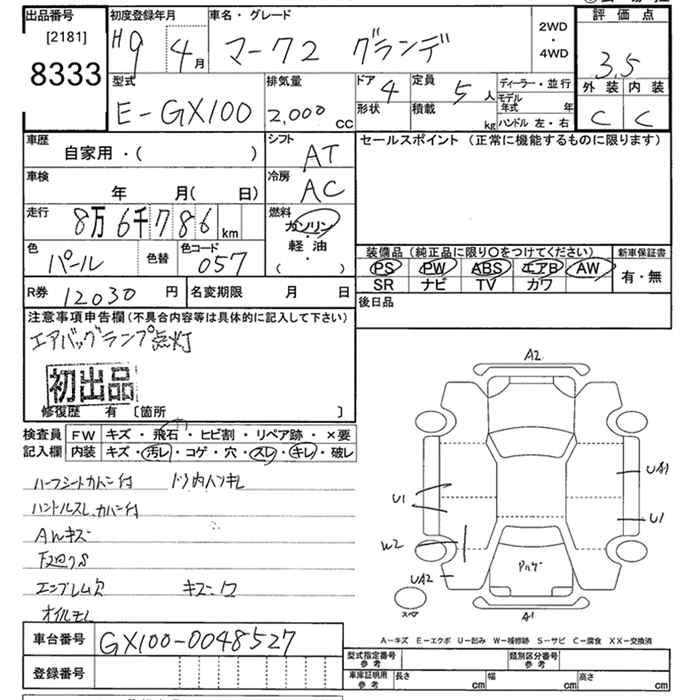 出品番号 初度登録年月 車名・グレード 2WD・4WD 評価点
[2181] 8333 H9年 4月 マーク2 グランデ 3.5
型式 排気量 ドア 4 定員 5人 ディーラー・並行 外装 内装
E-GX100 2,000cc 形状 積載 kg モデル年式 年 C C
ハンドル 左・右
車歴 シフト セールスポイント (正常に機能するものに限ります)
自家用・( ) AT
車検 冷房
年 月( 日) AC
走行 燃料
8万6千786km ガソリン・軽油・( )
色 パール 色替 色コード 057
装備品 (純正品に限り○をつけてください) 新車保証書
PS PW ABS エアB AW 有・無
SR ナビ TV カワ
R券 12030円 名変期限 月 日 後日品
注意事項申告欄(不具合内容等は具体的に記入して下さい)
エアバッグランプ点灯
初出品
修復歴 有 〔箇所 〕
検査員記入欄 FW キズ・飛石・ヒビ割・リペア跡・×要
内装 キズ・汚レ・コゲ・穴・スレ・キレ・破レ
ハンドルスレ カバー付
AWキズ
エンブレム欠
オイルモレ
A2
UA1
U1 U1
W2
UA2
スペア
A1
A-キズ E-エクボ U-凹み W-補修跡 S-サビ C-腐食 XX-交換済
車台番号 GX100-0048527
登録番号
型式指定番号 参考 類別区分番号 参考
車庫証明用 参考 長さ cm 幅 cm 高さ cm